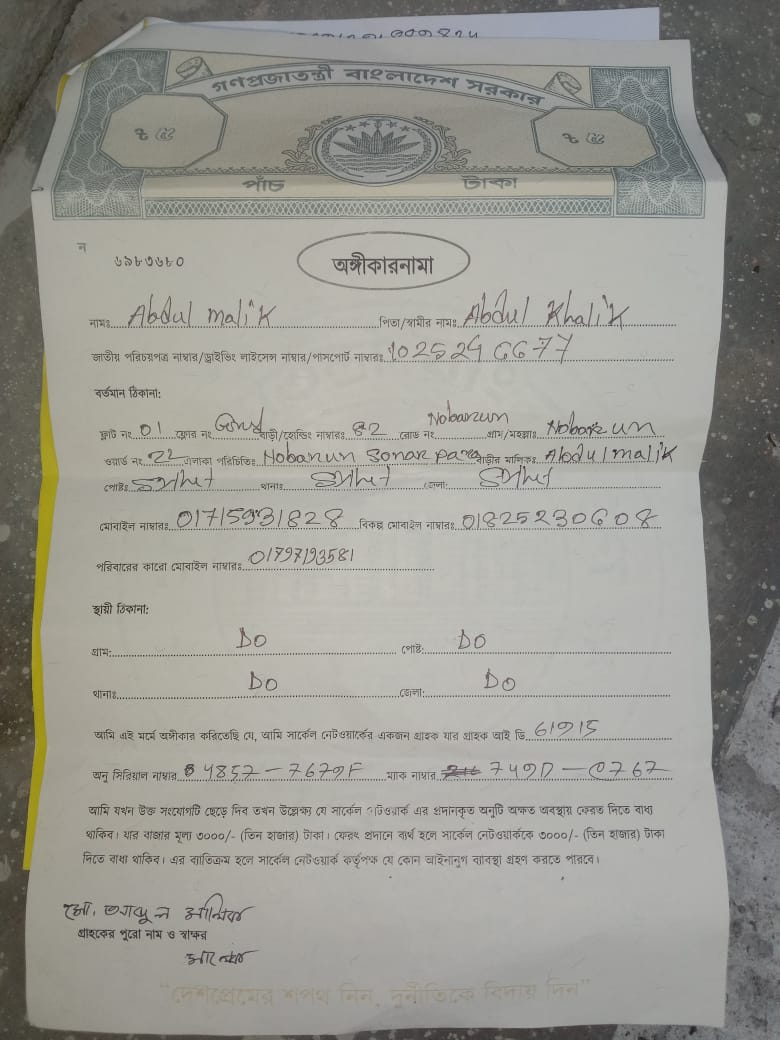 গণপ্রজাতন্ত্রী বাংলাদেশ সরকার
৳ ৫ ৳ ৫
পাঁচ টাকা
ন ৬৯৮৩৬৮০
অঙ্গীকারনামা
নামঃ Abdul malik পিতা/স্বামীর নামঃ Abdul Khalik
জাতীয় পরিচয়পত্র নাম্বার/ড্রাইভিং লাইসেন্স নাম্বার/পাসপোর্ট নাম্বারঃ 1025246677
বর্তমান ঠিকানা:
ফ্লাট নং 01 ফ্লোর নং বাড়ী/হোল্ডিং নাম্বারঃ 82 রোড নং Nobarun গ্রাম/মহল্লাঃ Nobarun
ওয়ার্ড নং 22 এলাকা পরিচিতিঃ Nobarun Sonar para বাড়ীর মালিকঃ Abdul malik
পোষ্টঃ Sylhet থানাঃ Sylhet জেলা: Sylhet
মোবাইল নাম্বারঃ 01715931828 বিকল্প মোবাইল নাম্বারঃ 01825230608
পরিবারের কারো মোবাইল নাম্বারঃ 01797193581
স্থায়ী ঠিকানা:
গ্রাম: DO পোষ্ট: DO
থানাঃ DO জেলা: DO
আমি এই মর্মে অঙ্গীকার করিতেছি যে, আমি সার্কেল নেটওয়ার্কের একজন গ্রাহক যার গ্রাহক আই ডি 61915
অনু সিরিয়াল নাম্বার 4857-7679F ম্যাক নাম্বার 749D-0767
আমি যখন উক্ত সংযোগটি ছেড়ে দিব তখন উল্লেক্ষ্য যে সার্কেল নেটওয়ার্ক এর প্রদানকৃত অনুটি অক্ষত অবস্থায় ফেরত দিতে বাধ্য
থাকিব। যার বাজার মূল্য ৩০০০/- (তিন হাজার) টাকা। ফেরৎ প্রদানে ব্যর্থ হলে সার্কেল নেটওয়ার্ককে ৩০০০/- (তিন হাজার) টাকা
দিতে বাধ্য থাকিব। এর ব্যাতিক্রম হলে সার্কেল নেটওয়ার্ক কর্তৃপক্ষ যে কোন আইনানুগ ব্যাবস্থা গ্রহণ করতে পারবে।
মো. আব্দুল মালিক
গ্রাহকের পুরো নাম ও স্বাক্ষর
মালেক
"দেশপ্রেমের শপথ নিন, দুর্নীতিকে বিদায় দিন"